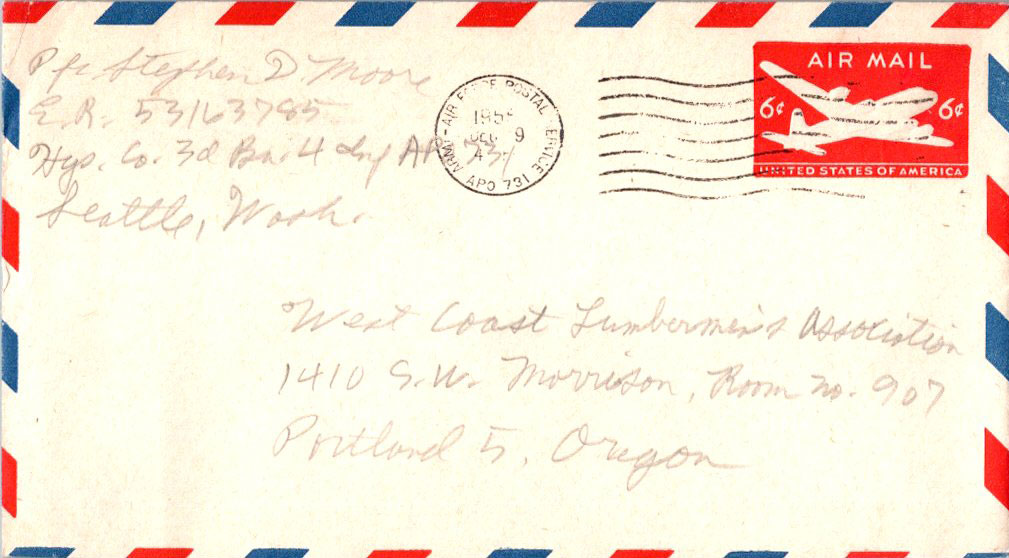 Pfc Stephen D. Moore
E.R. 53163785
Hqs. Co. 3d Bn. 4 Inf AP 731
Seattle, Wash.
ARMY-AIR FORCE POSTAL SERVICE
195
DEC 9
4
APO 731
AIR MAIL
6¢ 6¢
UNITED STATES OF AMERICA
West Coast Lumbermen's Association
1410 S.W. Morrison, Room no. 907
Portland 5, Oregon